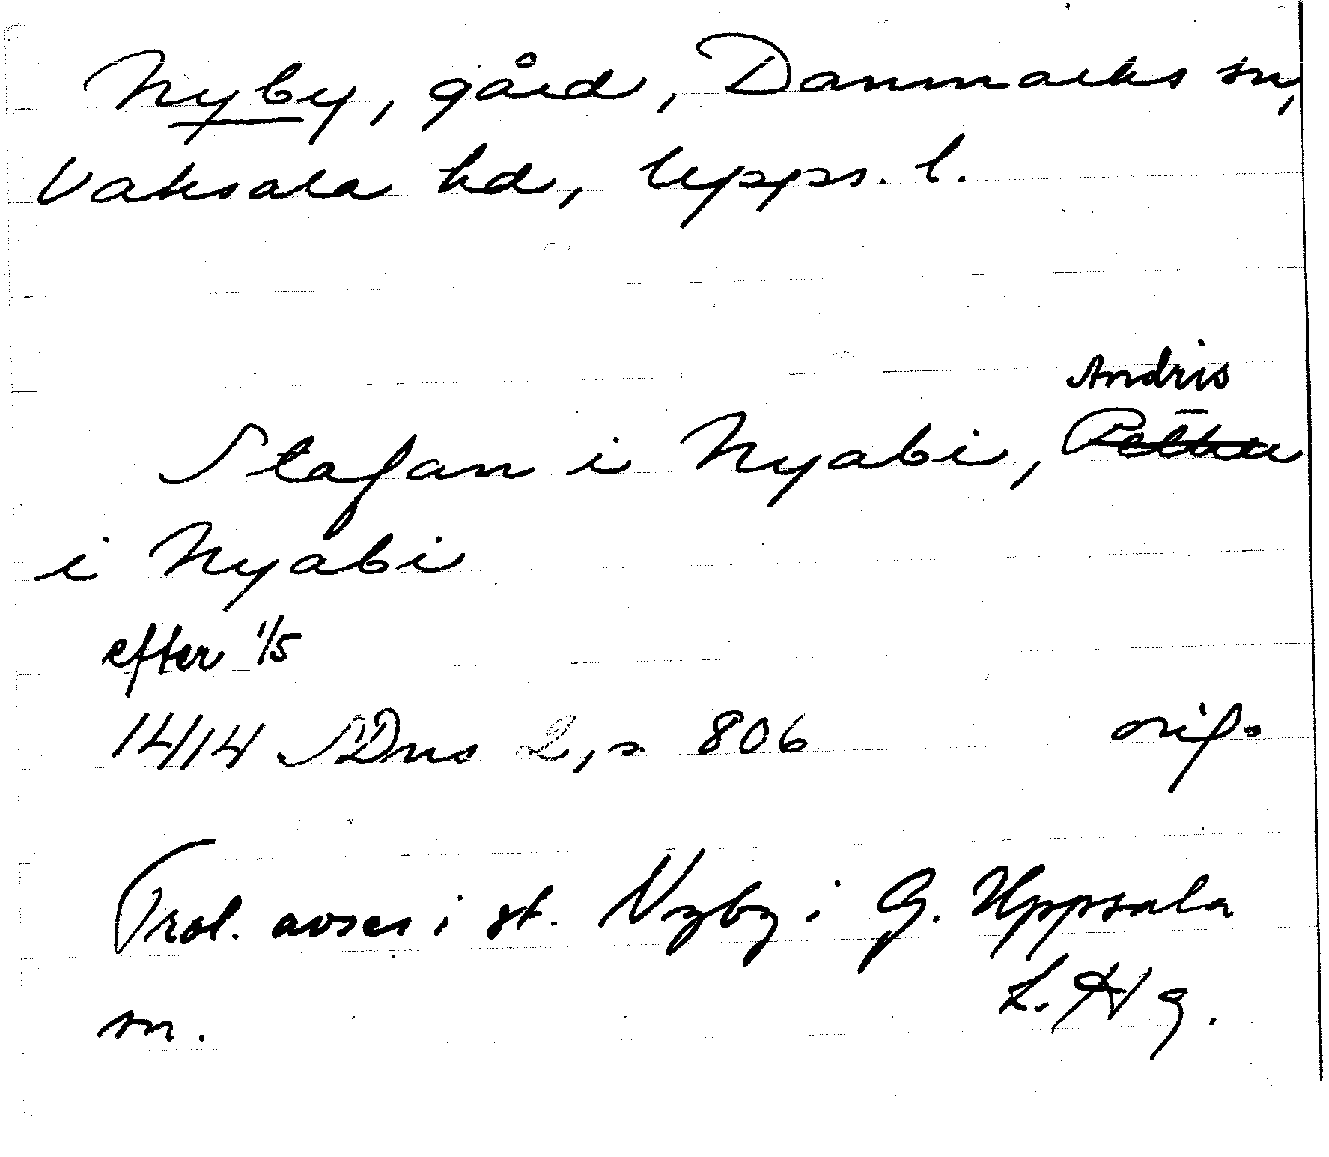 Nyby, gård, Danmarks sn,
Vaksala hd, Upps. l.
Andris
Stafan i Nyabi,
i Nyabi
efter 1/5
1414 SDns 2, s 806 orig.
Trol. avses i st. Nyby i G. Uppsala
sn. L. Hg.